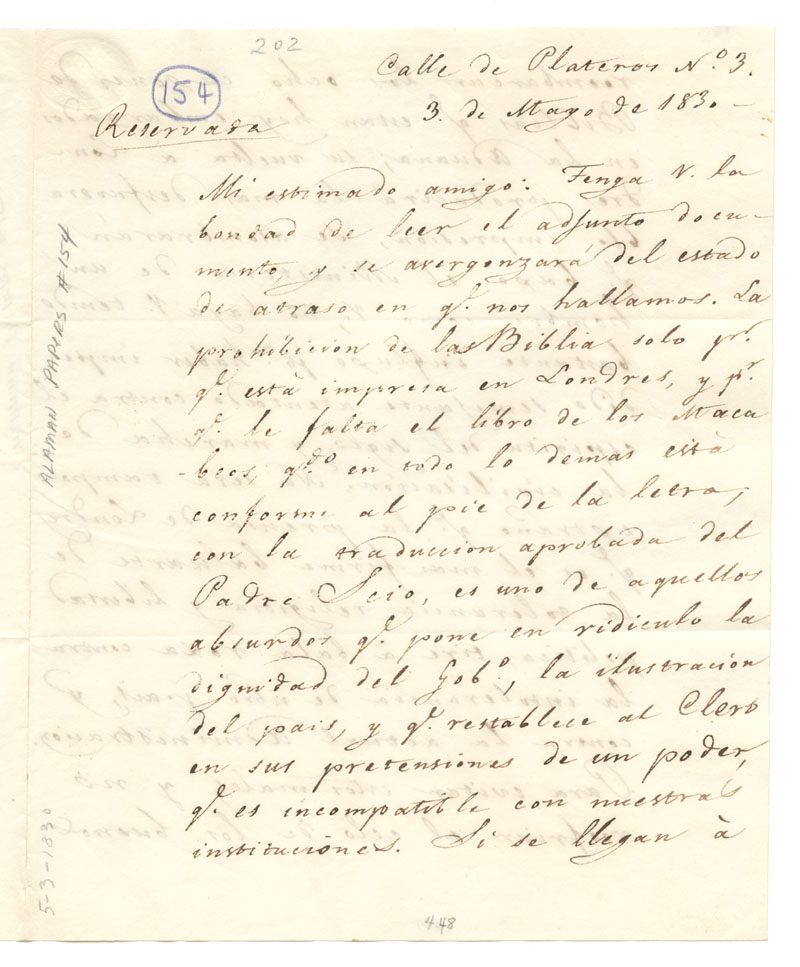 202
Calle de Plateros Nº 3.
154
3. de Mayo de 1830 —
Reservada
Mi estimado amigo: Tenga V. la
bondad de leer el adjunto docu-
mento, y se avergonzará del estado
de atraso en q.e nos hallamos. La
prohibicion de las Biblia solo p.r
q.e está impresa en Londres, y p.r
q.e le falta el libro de los Maca
-beos, q.do en todo lo demas está
conforme al pie de la letra,
con la traduccion aprobada del
Padre Scio, es uno de aquellos
absurdos q.e pone en ridiculo la
dignidad del Gob.o, la ilustracion
del pais, y q.e restablece al Clero
en sus pretensiones de un poder,
q.e es incompatible con nuestras
instituciones. Si se llegan à
ALAMAN PAPERS #154
5-3-1830
448